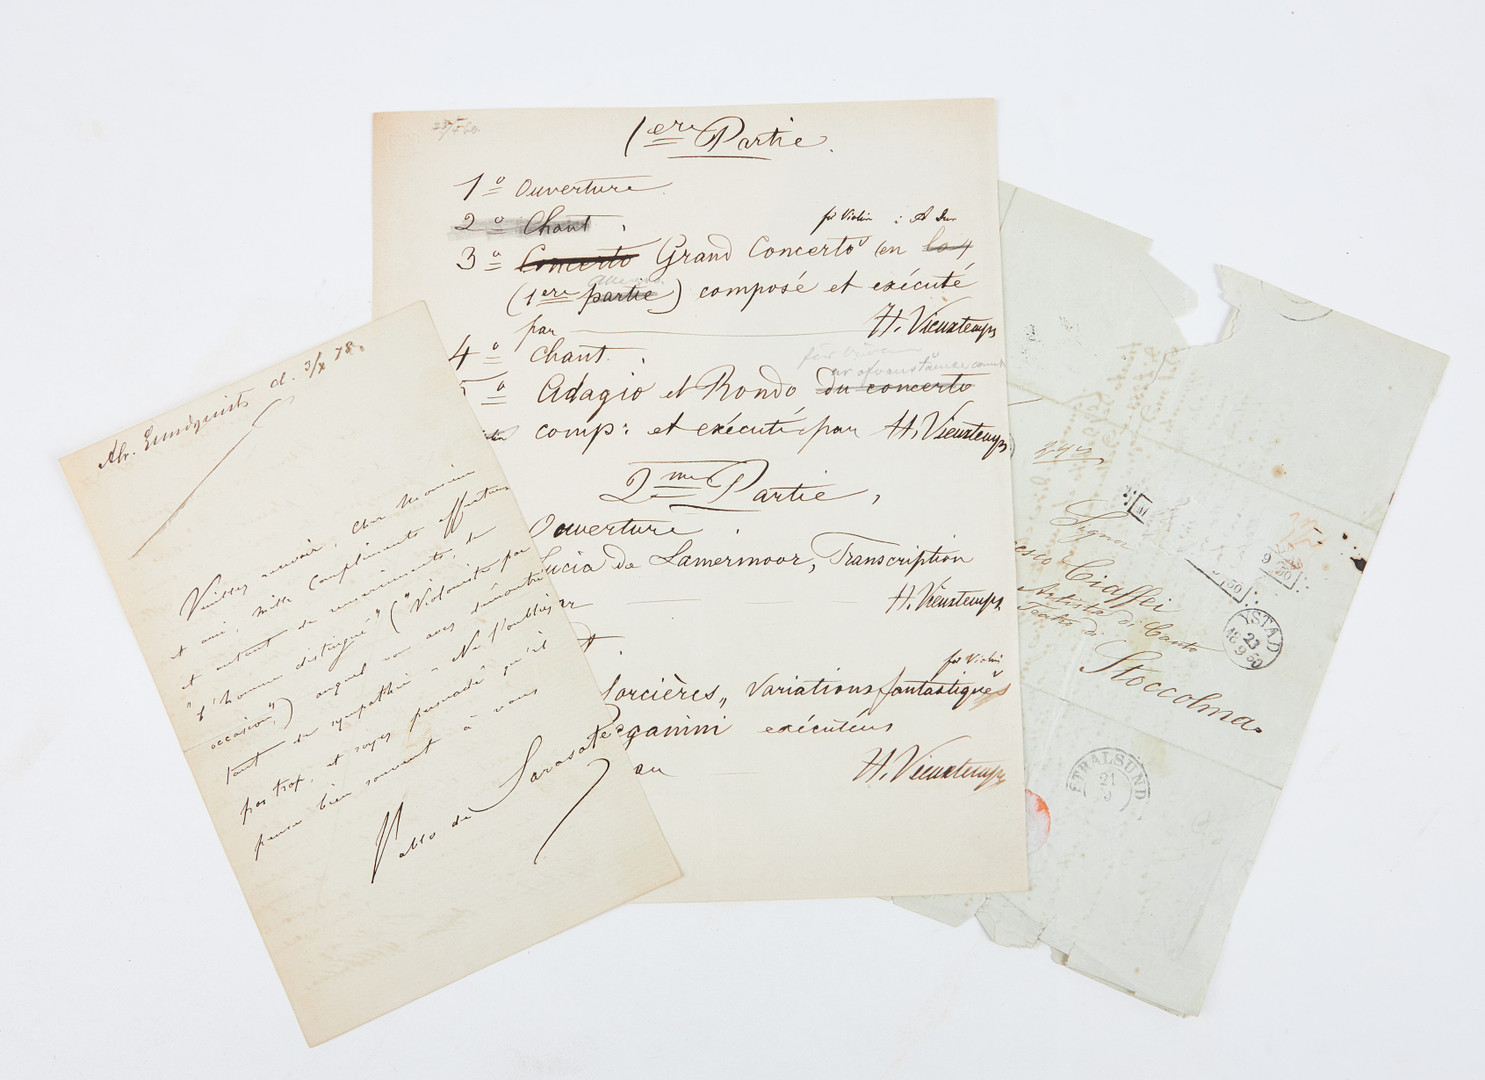 Abr. Lundquist d. 3/X 78.
Veuillez recevoir, cher Monsieur
et ami, mille compliments affectueux
et autant de remerciments, de
"l'homme distingué" ("Violoniste par
occasion",) auquel vous avez démontré
tant de sympathie. Ne l'oubliez
pas trop, et soyez persuadé qu'il
pense bien souvent à vous
Pablo de Sarasate
1ere Partie.
1º Ouverture
2º Chant.
för Violin : A dur
3º Concerto Grand Concerto en la 4
(1ere partie) composé et exécuté
par H. Vieuxtemps
4º Chant.
för Violin
5º Adagio et Rondo du concerto
comp: et exécuté par H. Vieuxtemps
2me Partie,
Ouverture
Lucia de Lamermoor, Transcription
H. Vieuxtemps
för Violin
Sorcières, Variations fantastiques
Paganini exécutées
H. Vieuxtemps
Signor
Ciaffei
Artista di Canto
Teatro di
Stoccolma
YSTAD
23
9
STRALSUND
21
9